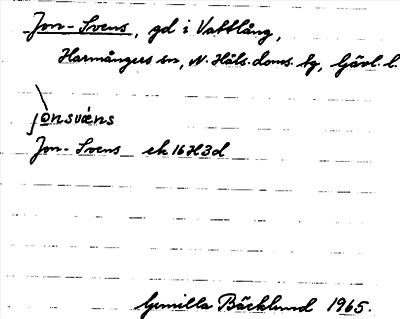 Jon-Svens, gd i Vattlång,
Harmångers sn, N. Häls. doms. bg, Gävl. l.
jònsvǽns
Jon-Svens ek 16H3d
Gunilla Bäcklund 1965.